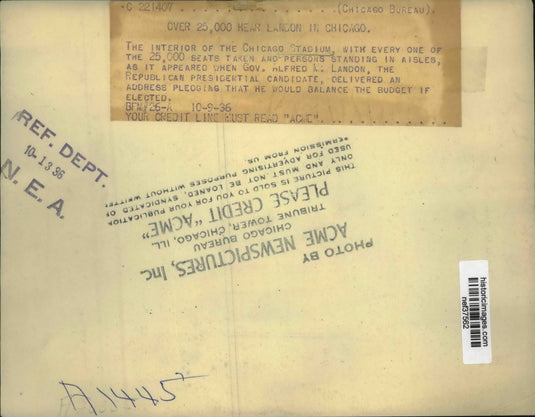 C 221407 . . . . . . . . . . . . . . . . (CHICAGO BUREAU).
OVER 25,000 HEAR LANDON IN CHICAGO.
THE INTERIOR OF THE CHICAGO STADIUM, WITH EVERY ONE OF
THE 25,000 SEATS TAKEN AND PERSONS STANDING IN AISLES,
AS IT APPEARED WHEN GOV. ALFRED M. LANDON, THE
REPUBLICAN PRESIDENTIAL CANDIDATE, DELIVERED AN
ADDRESS PLEDGING THAT HE WOULD BALANCE THE BUDGET IF
ELECTED.
10-9-36
YOUR CREDIT LINE MUST READ "ACME"
REF. DEPT.
10-13-36
N. E. A.
PHOTO BY
ACME NEWSPICTURES, Inc.
CHICAGO BUREAU
TRIBUNE TOWER, CHICAGO, ILL.
PLEASE CREDIT "ACME"
THIS PICTURE IS SOLD TO YOU FOR YOUR PUBLICATION
ONLY AND MUST NOT BE LOANED, SYNDICATED OR
USED FOR ADVERTISING PURPOSES WITHOUT WRITTEN
PERMISSION FROM US.
historicimages.com
nef37562
A1445